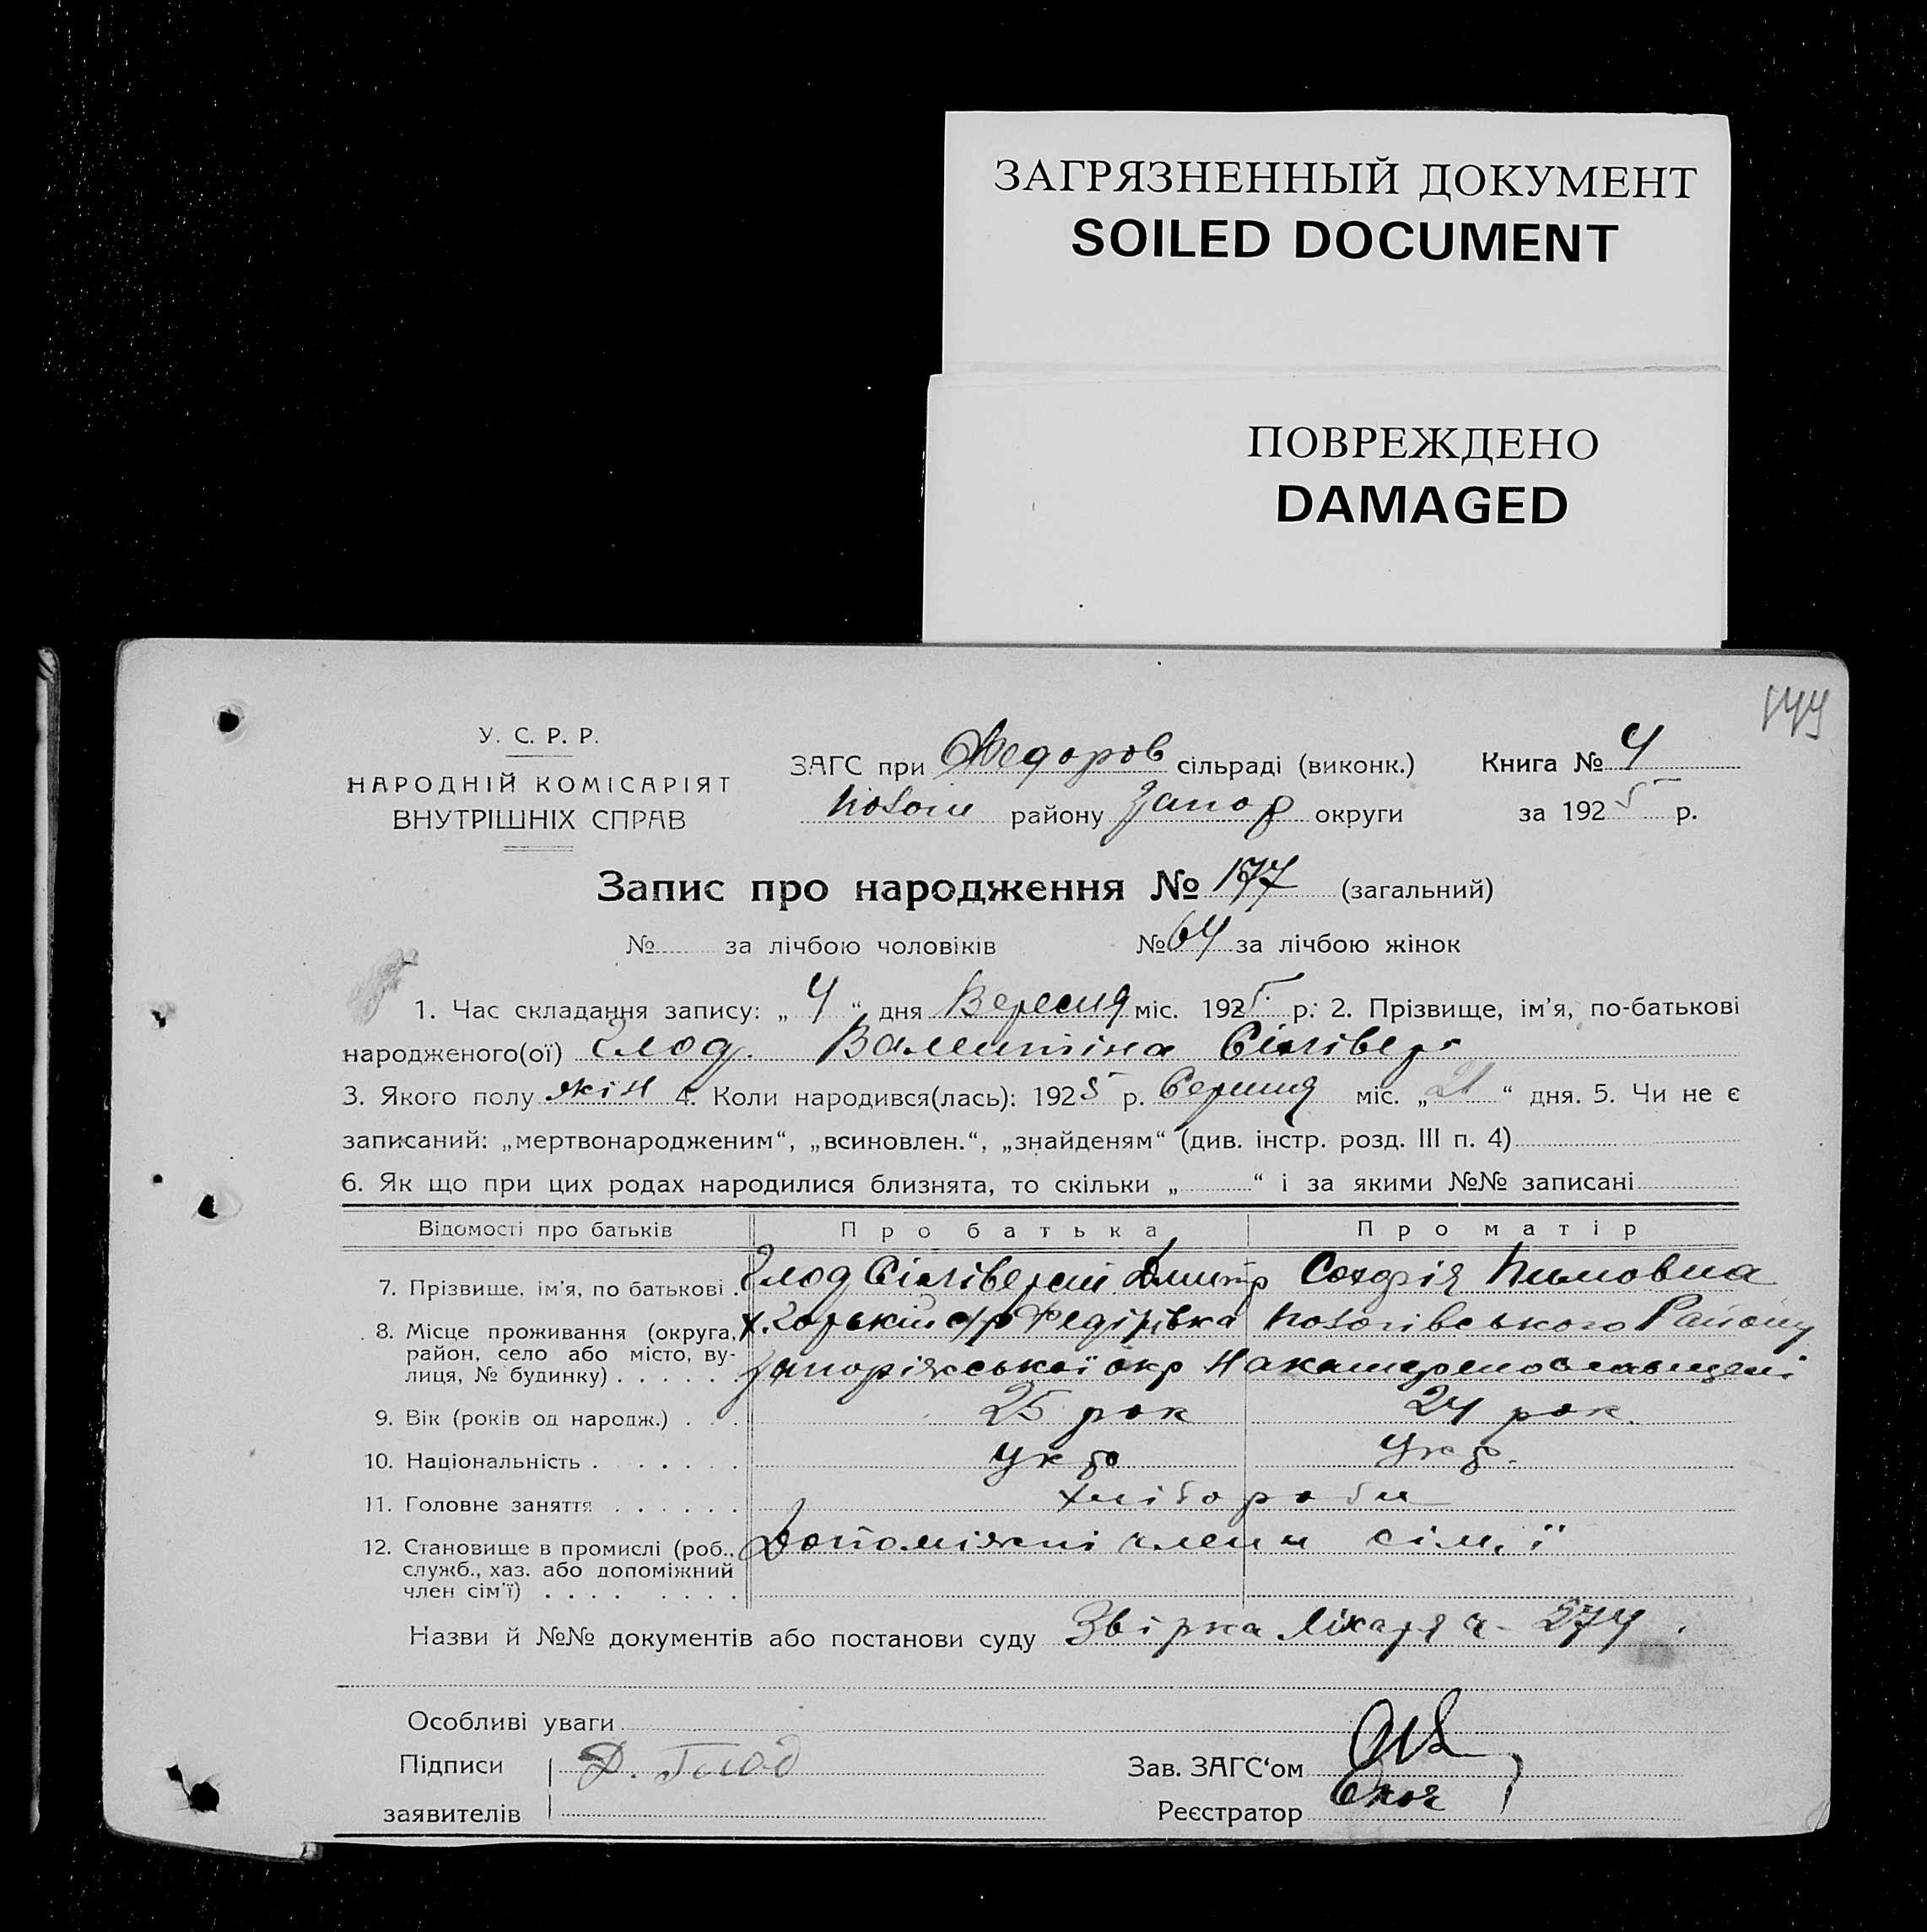 ЗАГРЯЗНЕННЫЙ ДОКУМЕНТ
SOILED DOCUMENT
ПОВРЕЖДЕНО
DAMAGED
У. С. Р. Р.
НАРОДНІЙ КОМІСАРІЯТ
ВНУТРІШНІХ СПРАВ
ЗАГС при Федоров сільраді (виконк.) Книга № 4
району Запор округи за 1925 р.
Запис про народження № 177 (загальний)
№ за лічбою чоловіків № 64 за лічбою жінок
1. Час складання запису: „ 4 “ дня Вересня міс. 1925 р. 2. Прізвище, ім'я, по-батькові
народженого(ої) Глод Валентіна Сілівер
3. Якого полу жін 4. Коли народився(лась): 1925 р. Серпня міс. „ 21 “ дня. 5. Чи не є
записаний: „мертвонародженим“, „всиновлен.“, „знайденям“ (див. інстр. розд. III п. 4)
6. Як що при цих родах народилися близнята, то скільки „ “ і за якими №№ записані
Відомості про батьків Про батька Про матір
7. Прізвище, ім'я, по батькові Глод Дмитр Софія
8. Місце проживання (округа, Федірівка Району
район, село або місто, ву- Запоріжської окр
лиця, № будинку)
9. Вік (років од народж.) 25 рок 24 рок.
10. Національність Укр Укр.
11. Головне заняття хлібороби
12. Становище в промислі (роб., Допоміжні члени сім'ї
служб., хаз. або допоміжний
член сім'ї)
Назви й №№ документів або постанови суду Звірка Лікаря ч. 274
Особливі уваги
Підписи Д. Глод Зав. ЗАГС'ом
заявителів Реєстратор